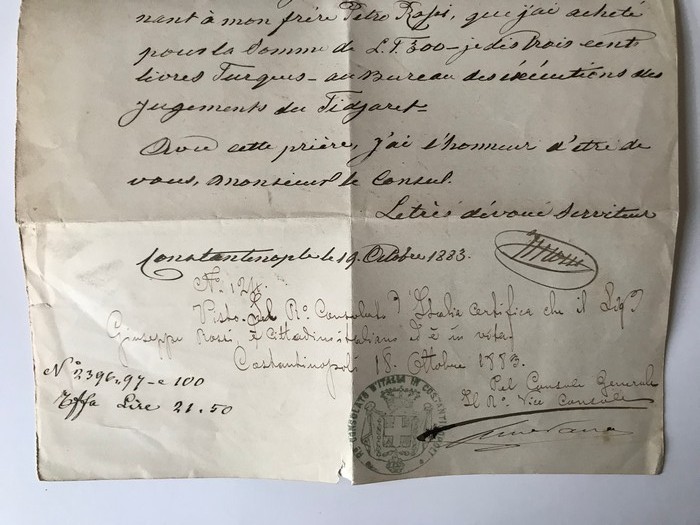 nant à mon frère Petro Rossi, que j'ai acheté
pour la Somme de L.T 300 – je dis trois cent
livres Turques – au Bureau des éxécutions des
jugements du Tidjaret –
Avec cette prière, j'ai l'honneur d'être de
vous, Monsieur le Consul.
Le très dévoué Serviteur
Constantinople le 19 Octobre 1883.
No. 124.
Visto. Il Ro. Consolato d'Italia certifica che il Sigr
Giuseppe Rossi è cittadino italiano ed è in vita.
Costantinopoli 18. Ottobre 1883.
No 2396.97 – e 100
Tffa Lire 21.50
Pel Console Generale
Il Ro. Vice Console
Ro CONSOLATO D'ITALIA IN COSTANTINOPOLI